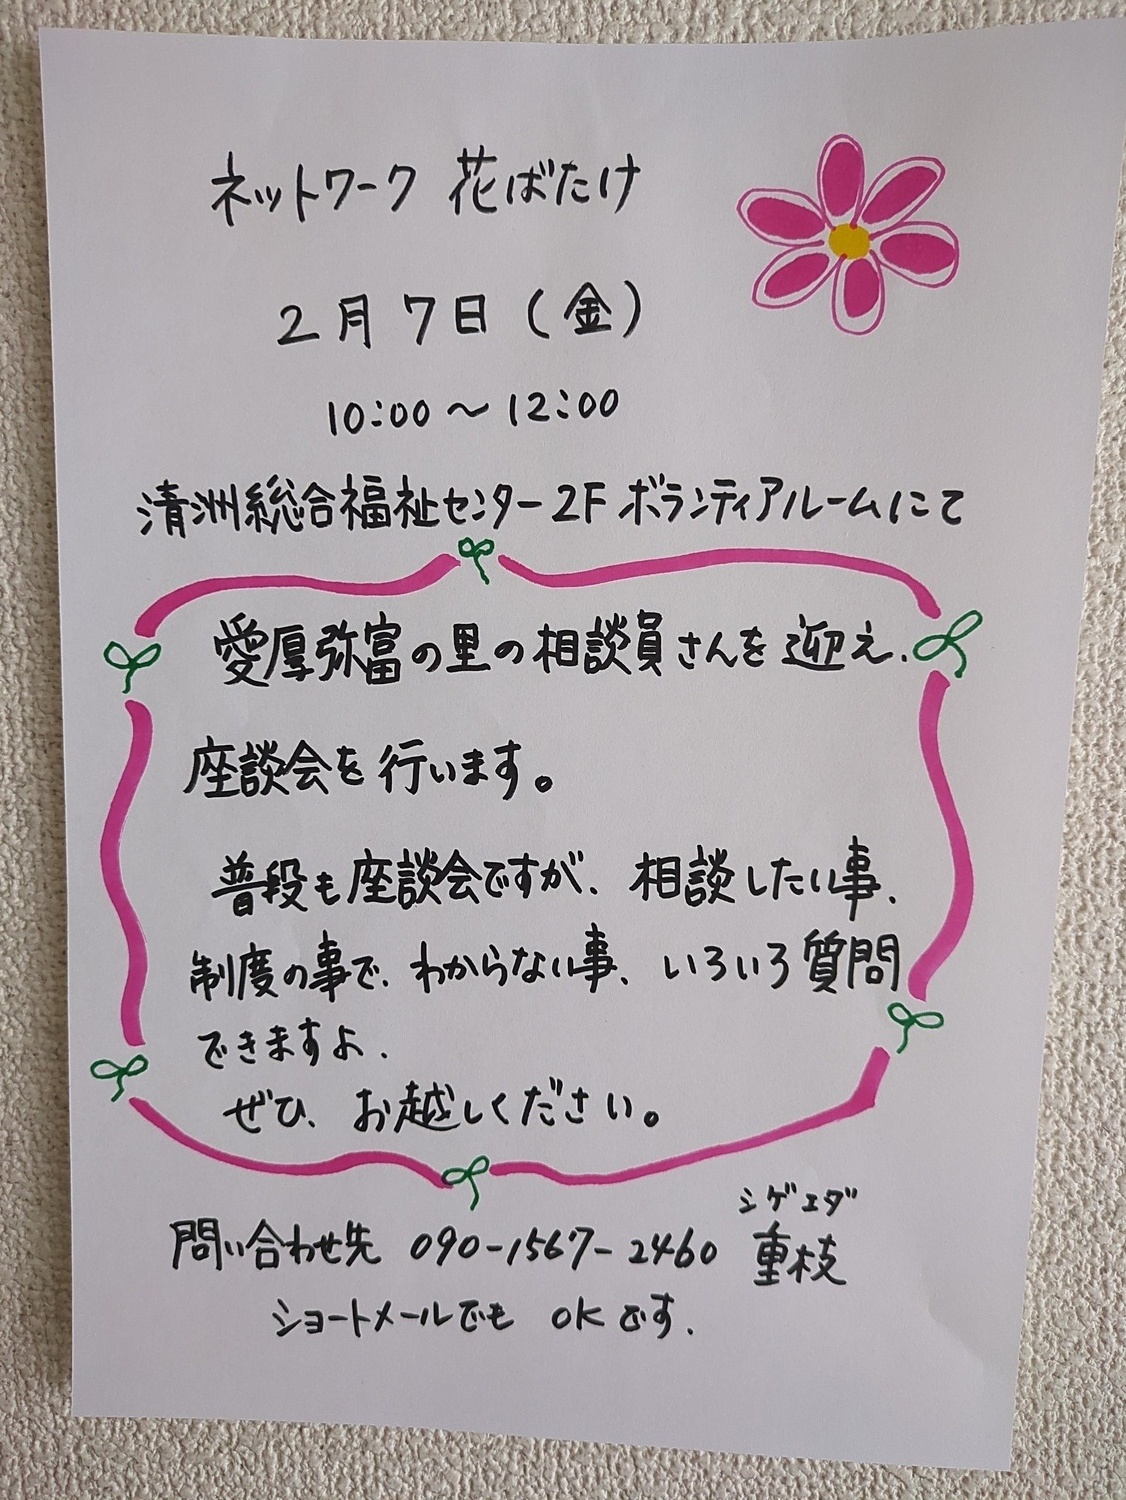 ネットワーク 花ばたけ
2月7日(金)
10:00〜12:00
清洲総合福祉センター2F ボランティアルームにて
愛厚弥富の里の相談員さんを迎え、
座談会を行います。
普段も座談会ですが、相談したい事、
制度の事で、わからない事、いろいろ質問
できますよ、
ぜひ、お越しください。
シゲエダ
問い合わせ先 090-1567-2460 重枝
ショートメールでも OKです、